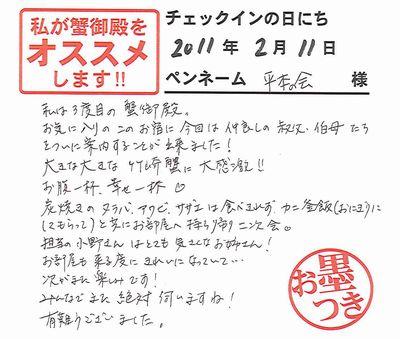 私が蟹御殿を
オススメ
します!!
チェックインの日にち
2011年 2月 11日
ペンネーム 平松の会 様
私は3度目の蟹御殿。
お気に入りのこのお宿に今回は仲良しの叔父・伯母たち
をついに案内することが出来ました!
大きな大きな竹崎蟹に大感激!!
お腹一杯、幸せ一杯♡
炭焼きのタラバ、アワビ、サザエは食べきれず、カニ釜飯(おにぎりに
してもらって)と共にお部屋へ持ち帰り二次会。
担当の小野さんはとても気さくなお姉さん!
お部屋も来る度にきれいになっていて…
次がまた楽しみです!
みんなでまた絶対伺いますね!
有難うございました。
お墨つき